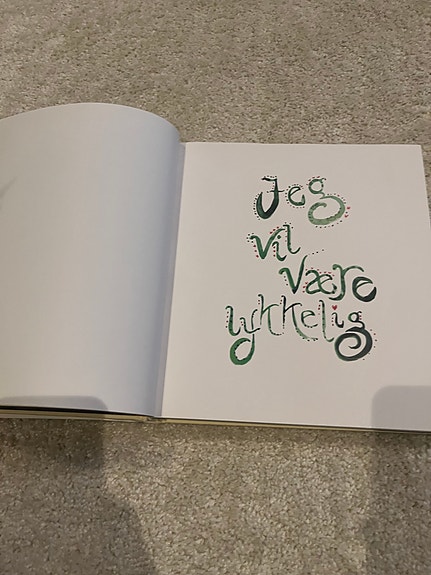 Jeg
vil
være
lykkelig